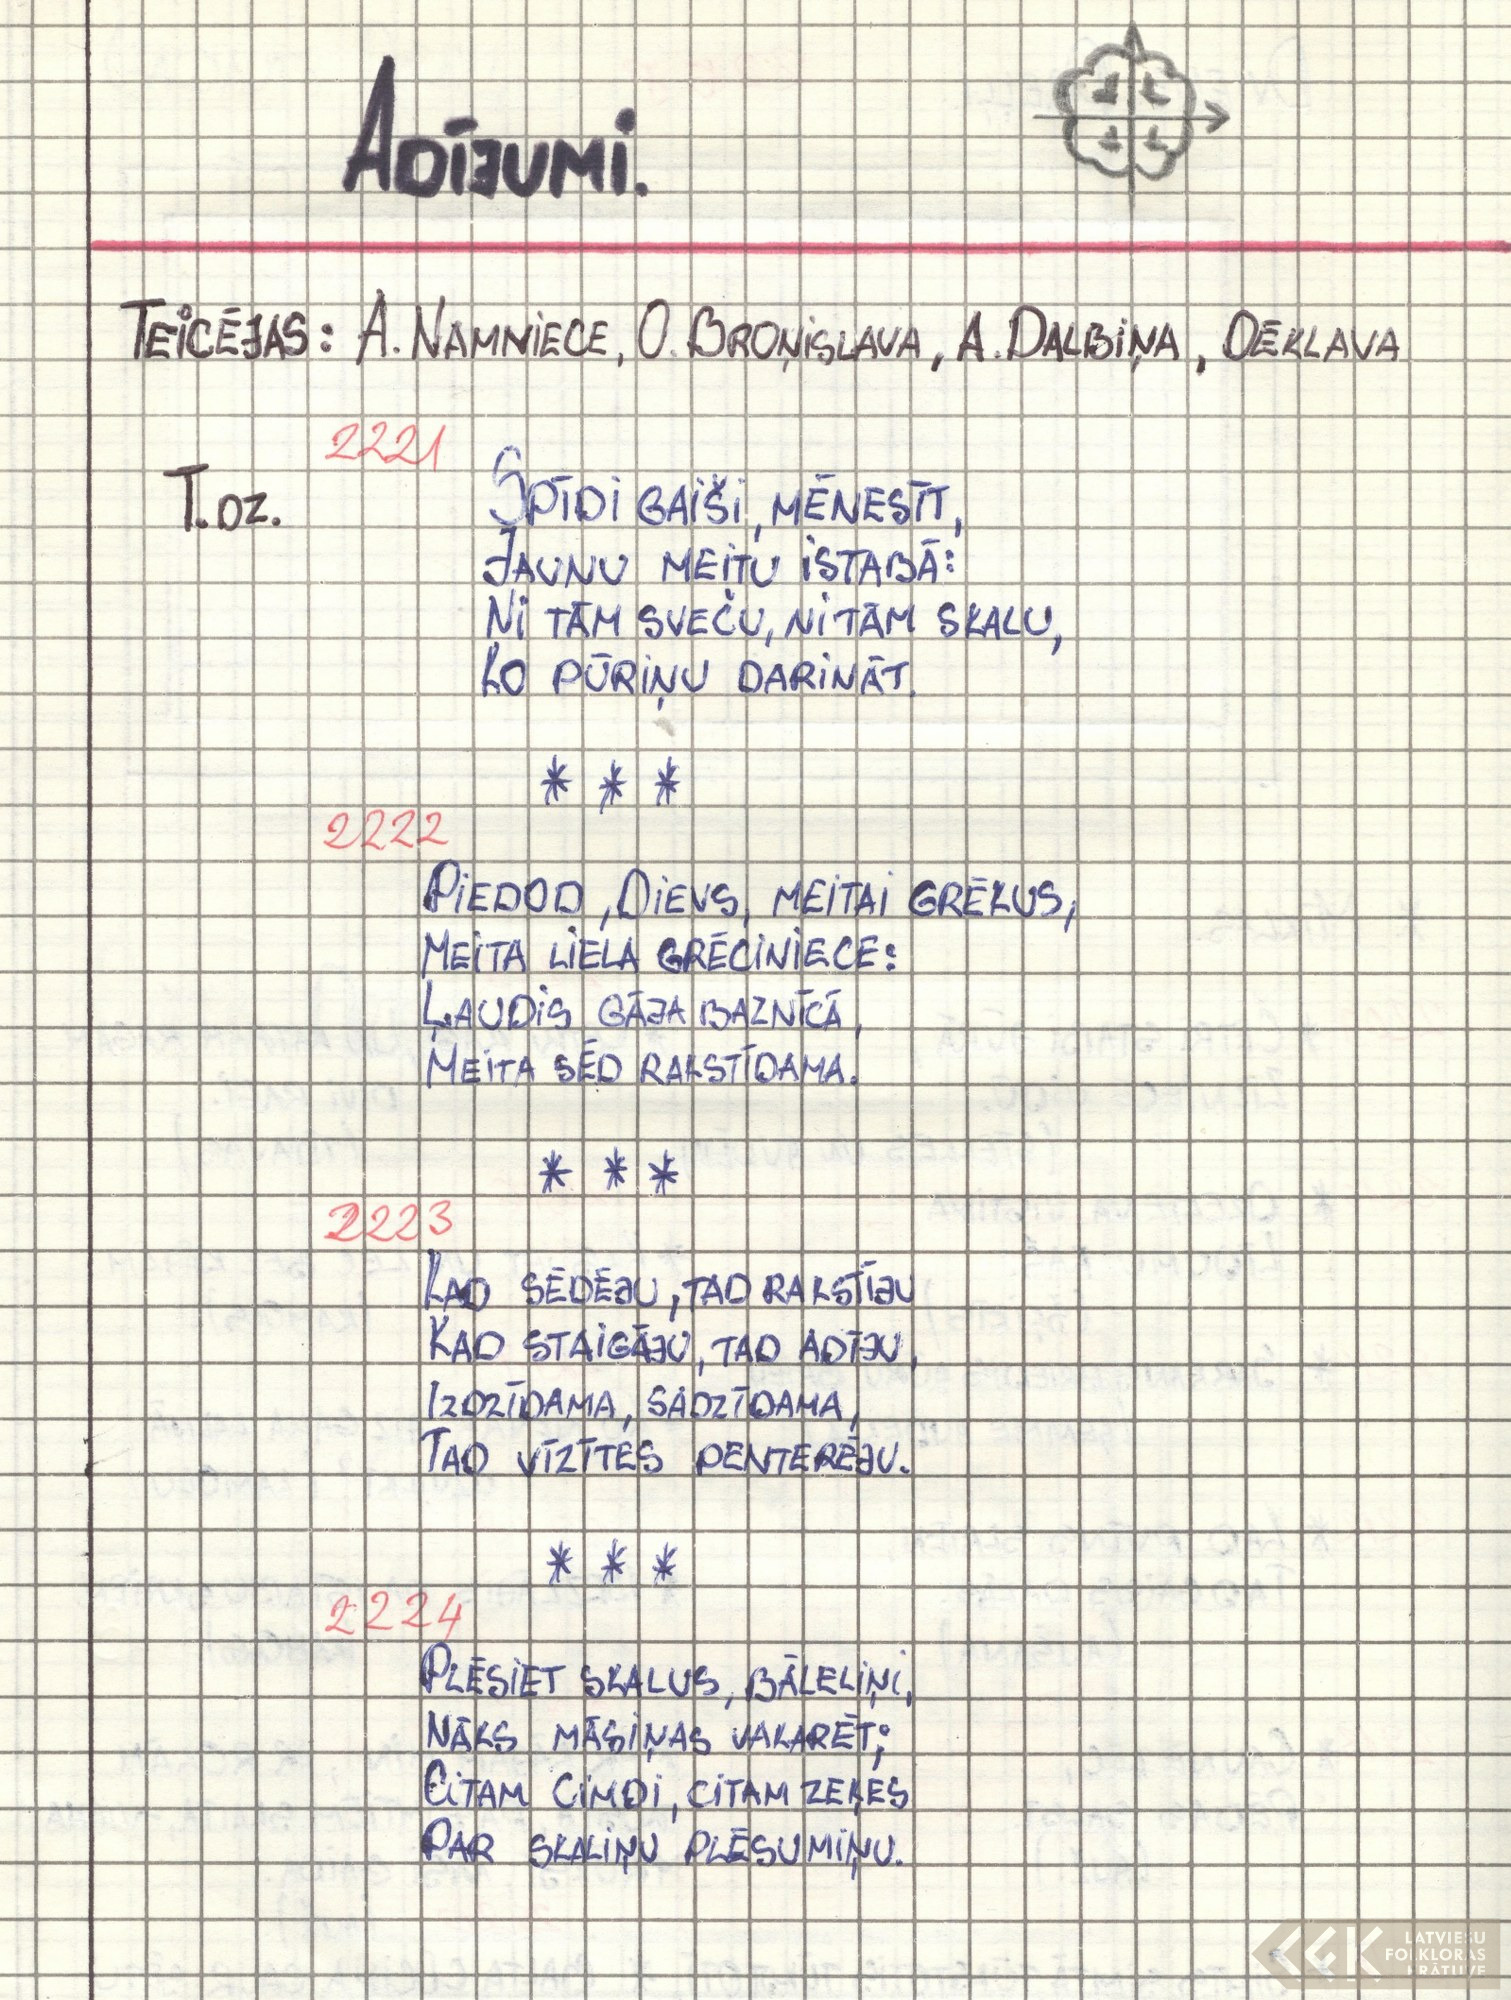 Adījumi.
Teicējas: A. Namniece, O. Broņislava, A. Dalbiņa, Dēklava
2221
T. dz.
Spīdi gaiši, mēnesīt,
Jaunu meitu istabā:
Ni tām sveču, ni tām skalu,
Ko pūriņu darināt.
* * *
2222
Piedod, Dievs, meitai grēkus,
Meita liela grēciniece:
Ļaudis gāja baznīcā,
Meita sēd rakstīdama.
* * *
2223
Kad sēdēju, tad rakstīju
Kad staigāju, tad adīju,
Izdzīdama, sadzīdama,
Tad vīzītes penterēju.
* * *
2224
Plēsiet skalus, bāleliņi,
Nāks māsiņas vakarēt;
Citam cimdi, citam zeķes
Par skaliņu plēsumiņu.
LFK
LATVIEŠU
FOLKLORAS
KRĀTUVE